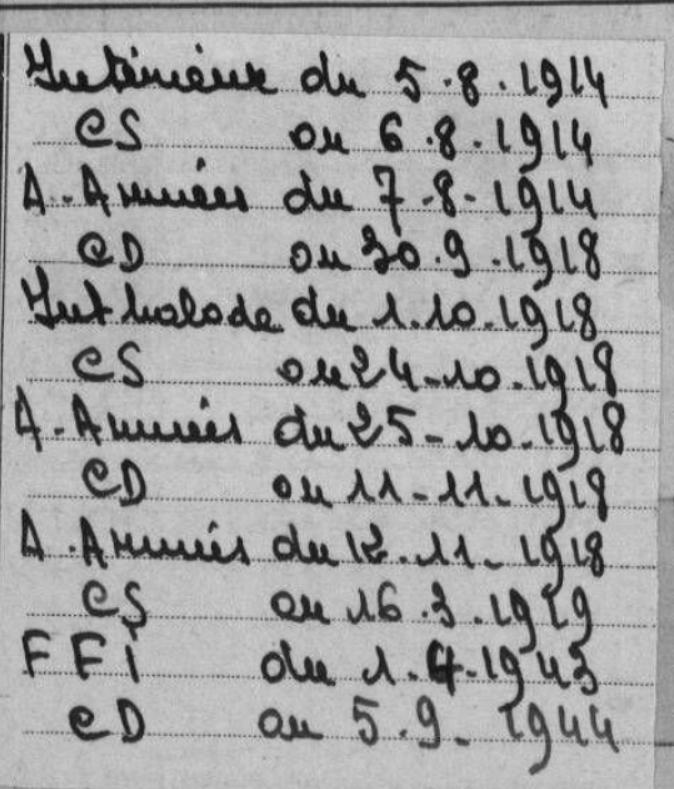 Intérieur du 5.8.1914
CS au 6.8.1914
A.Armées du 7.8.1914
CD au 30.9.1918
Int malade du 1.10.1918
CS au 24-10.1918
A.Armées du 25-10.1918
CD au 11-11-1918
A.Armées du 12.11.1918
CS au 16.3.1919
FFI du 1.4.1943
CD au 5.9.1944